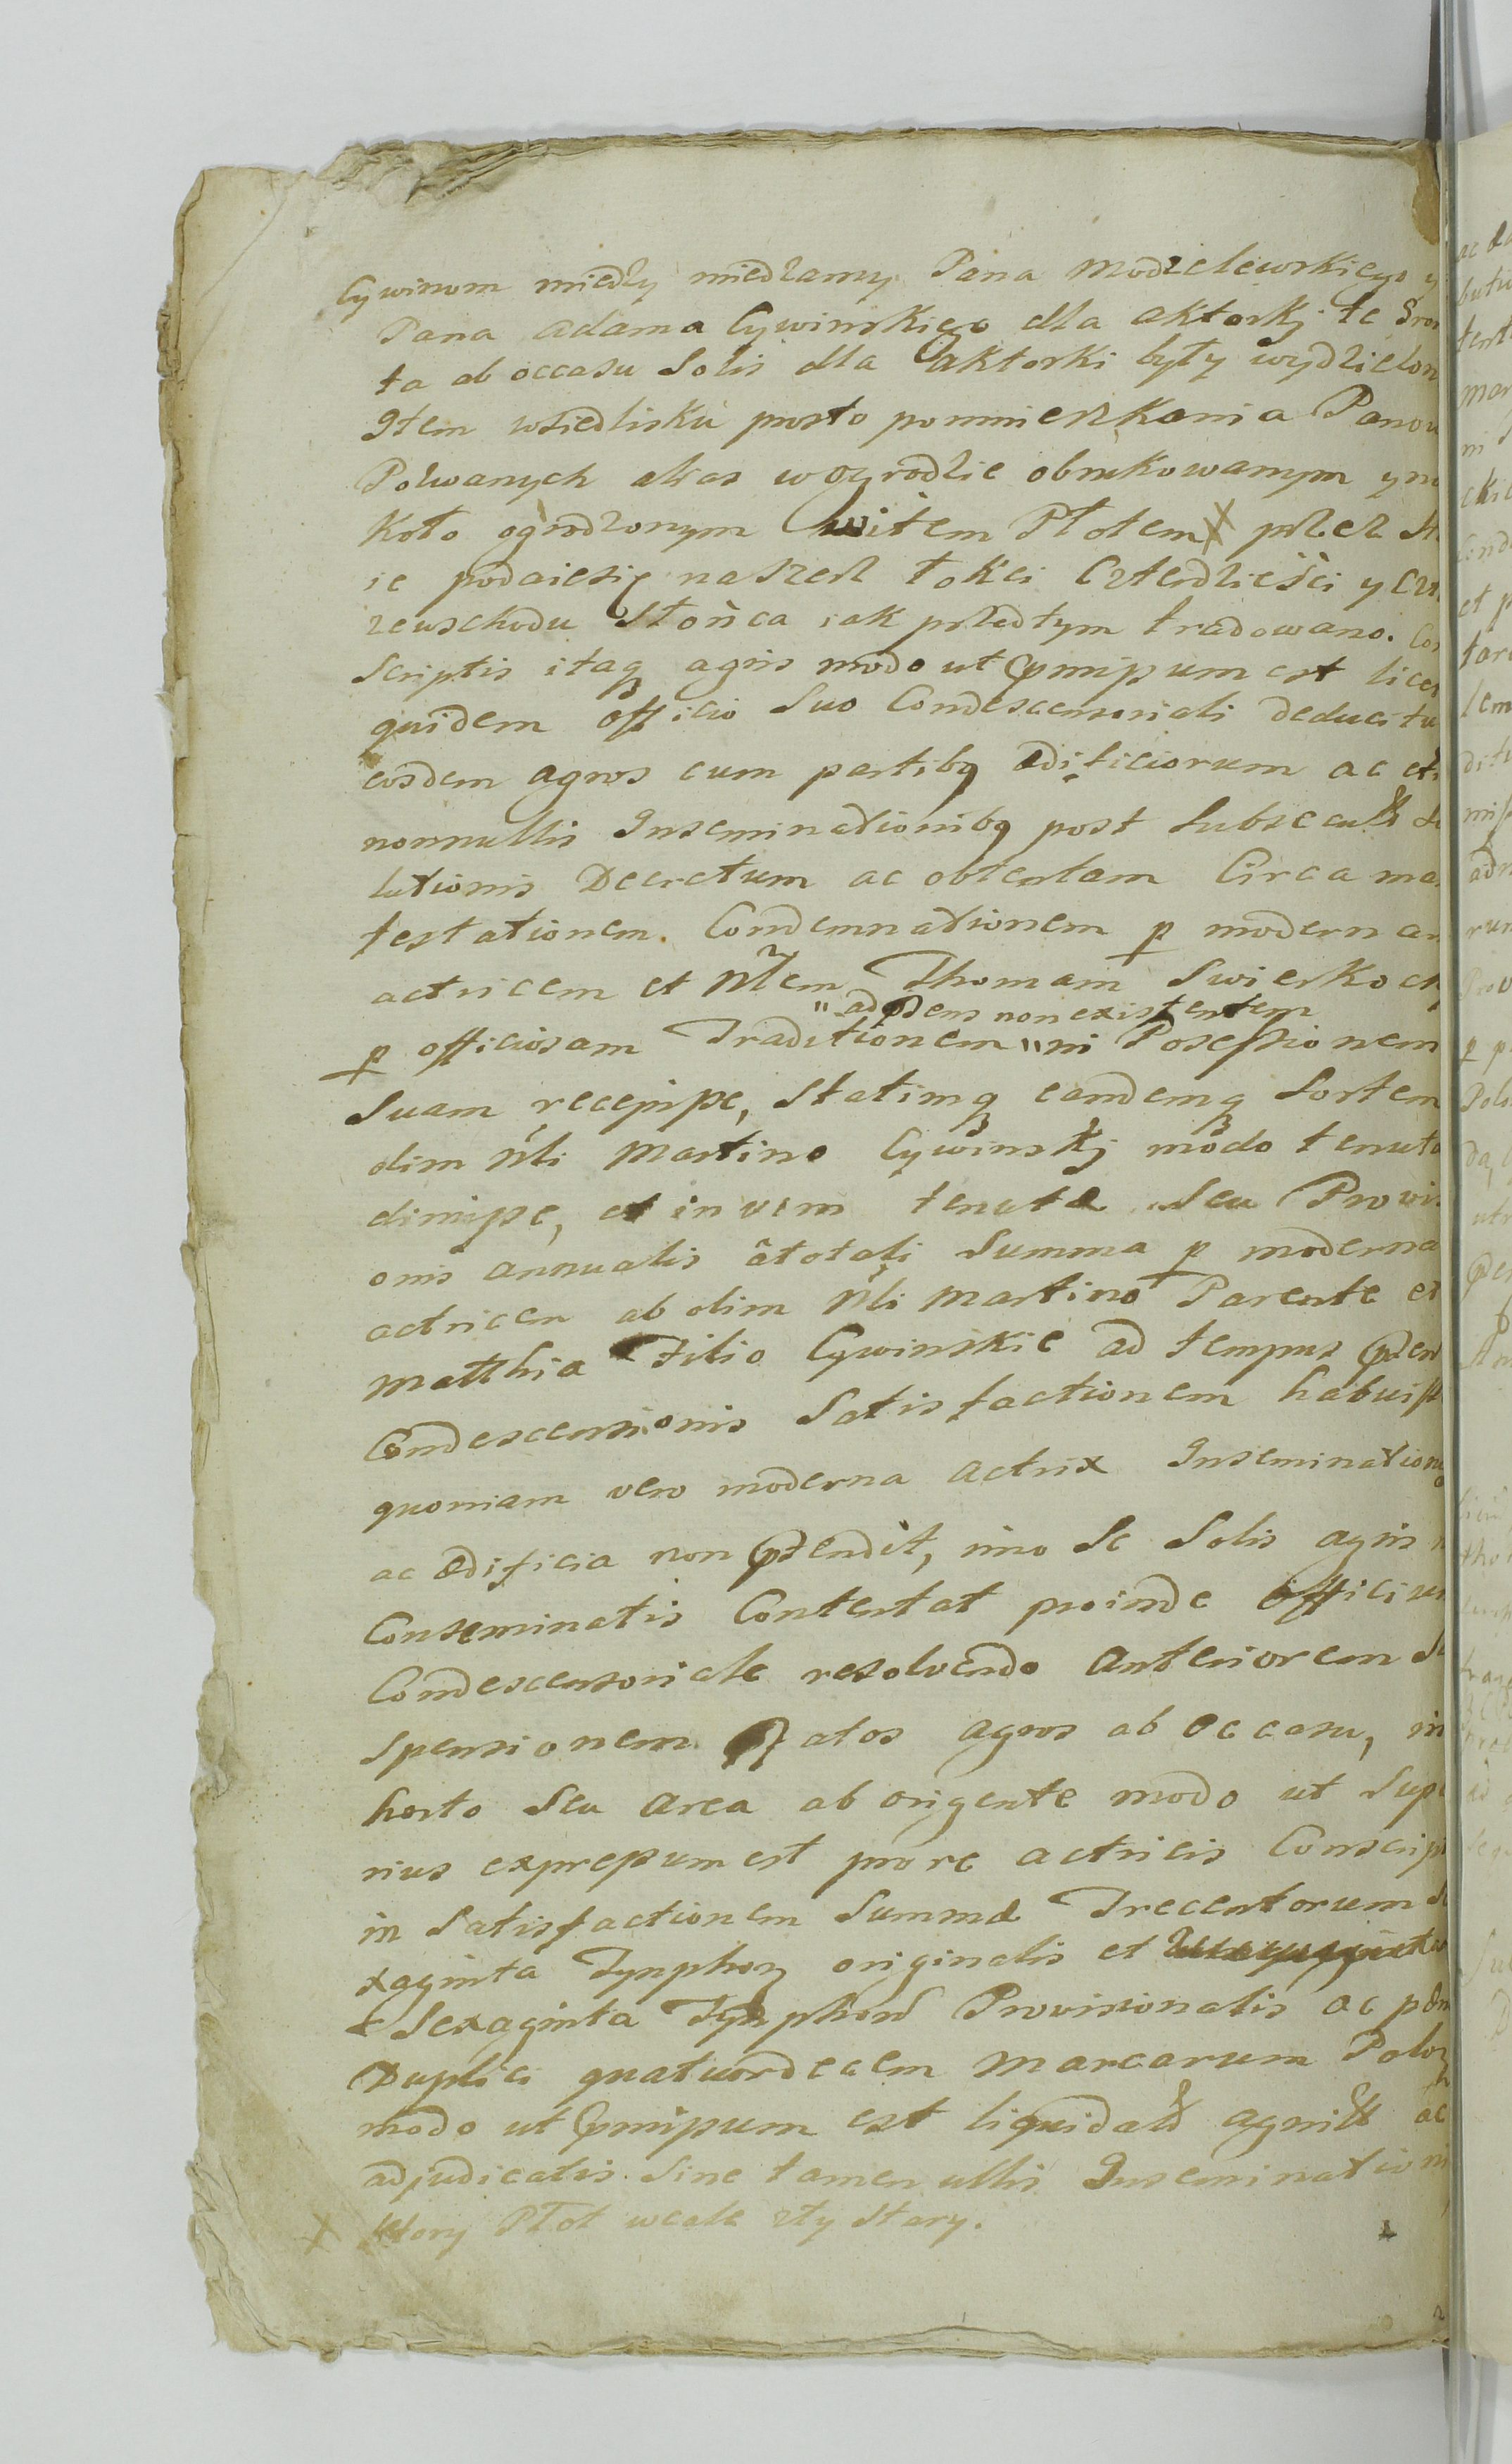 Cywinom miedzy miedzamy Pana Modzelewskiego y
Pana Adama Cywinskiego dla aktorkj te
ta ab occasu Solis dla aktorki były wydzielon
Item wsiedlisku prosto pomnieszkania Panow
Polwanych alias wogrodzie obrukowanym yn
Koło ogrodzonym witem Płotem X przez
ie podaiesię naszesz łokci Czterdzieści y Czt
zewschodu Słońca iak przedtym tradowano. Co
Scriptis itaq agris modo ut pmissum est licet
quidem officio Suo Condescensoriali deducitu
eosdem agros cum partibq ædificiorum ac eti
nonnullis Inseminationibq post Subsecut
lutionis Decretum ac obtentam Circa ma
festationem Condemnationem p modernam
actricem et Nlem Thomam Swierkock
"ad psens non existentem
p officiosam Traditionem " in Posessionem
Suam recepisse, Statimq eandemq Sortem
olim Nli Martino Cywinskj modo tenuto
dimisse, et in vim tenutæ Seu Provisi
onis annualis à totali Summa p moderna
actricem ab olim Nli Martino Parente et
Matthia Filio Cywinskie ad tempus psen
Condescensionis Satisfactionem habuiss
quoniam vero moderna Actrix Inseminationes
ac ædificia non ptendit, imo Se Solis agris
Conseminatis Contentat proinde officium
Condescensoriale resolvendo Anteriorem Su
spensionem atos agros ab occasu, in
horto Seu Area ab origente modo ut Supe
rius expressum est pro re actricis Conscrip
in Satisfactionem Summæ Trecentorum Se
xaginta Tynphoz originalis et
Sexaginta Tynphor Provisionalis ac pæn
Duplici quatuordecem Marcarum Poloz
modo ut pmissum est liquidat agnit ac
adjudicatis Sine tamen ullis Inseminationi
X ktory Płot wcale zły Stary.